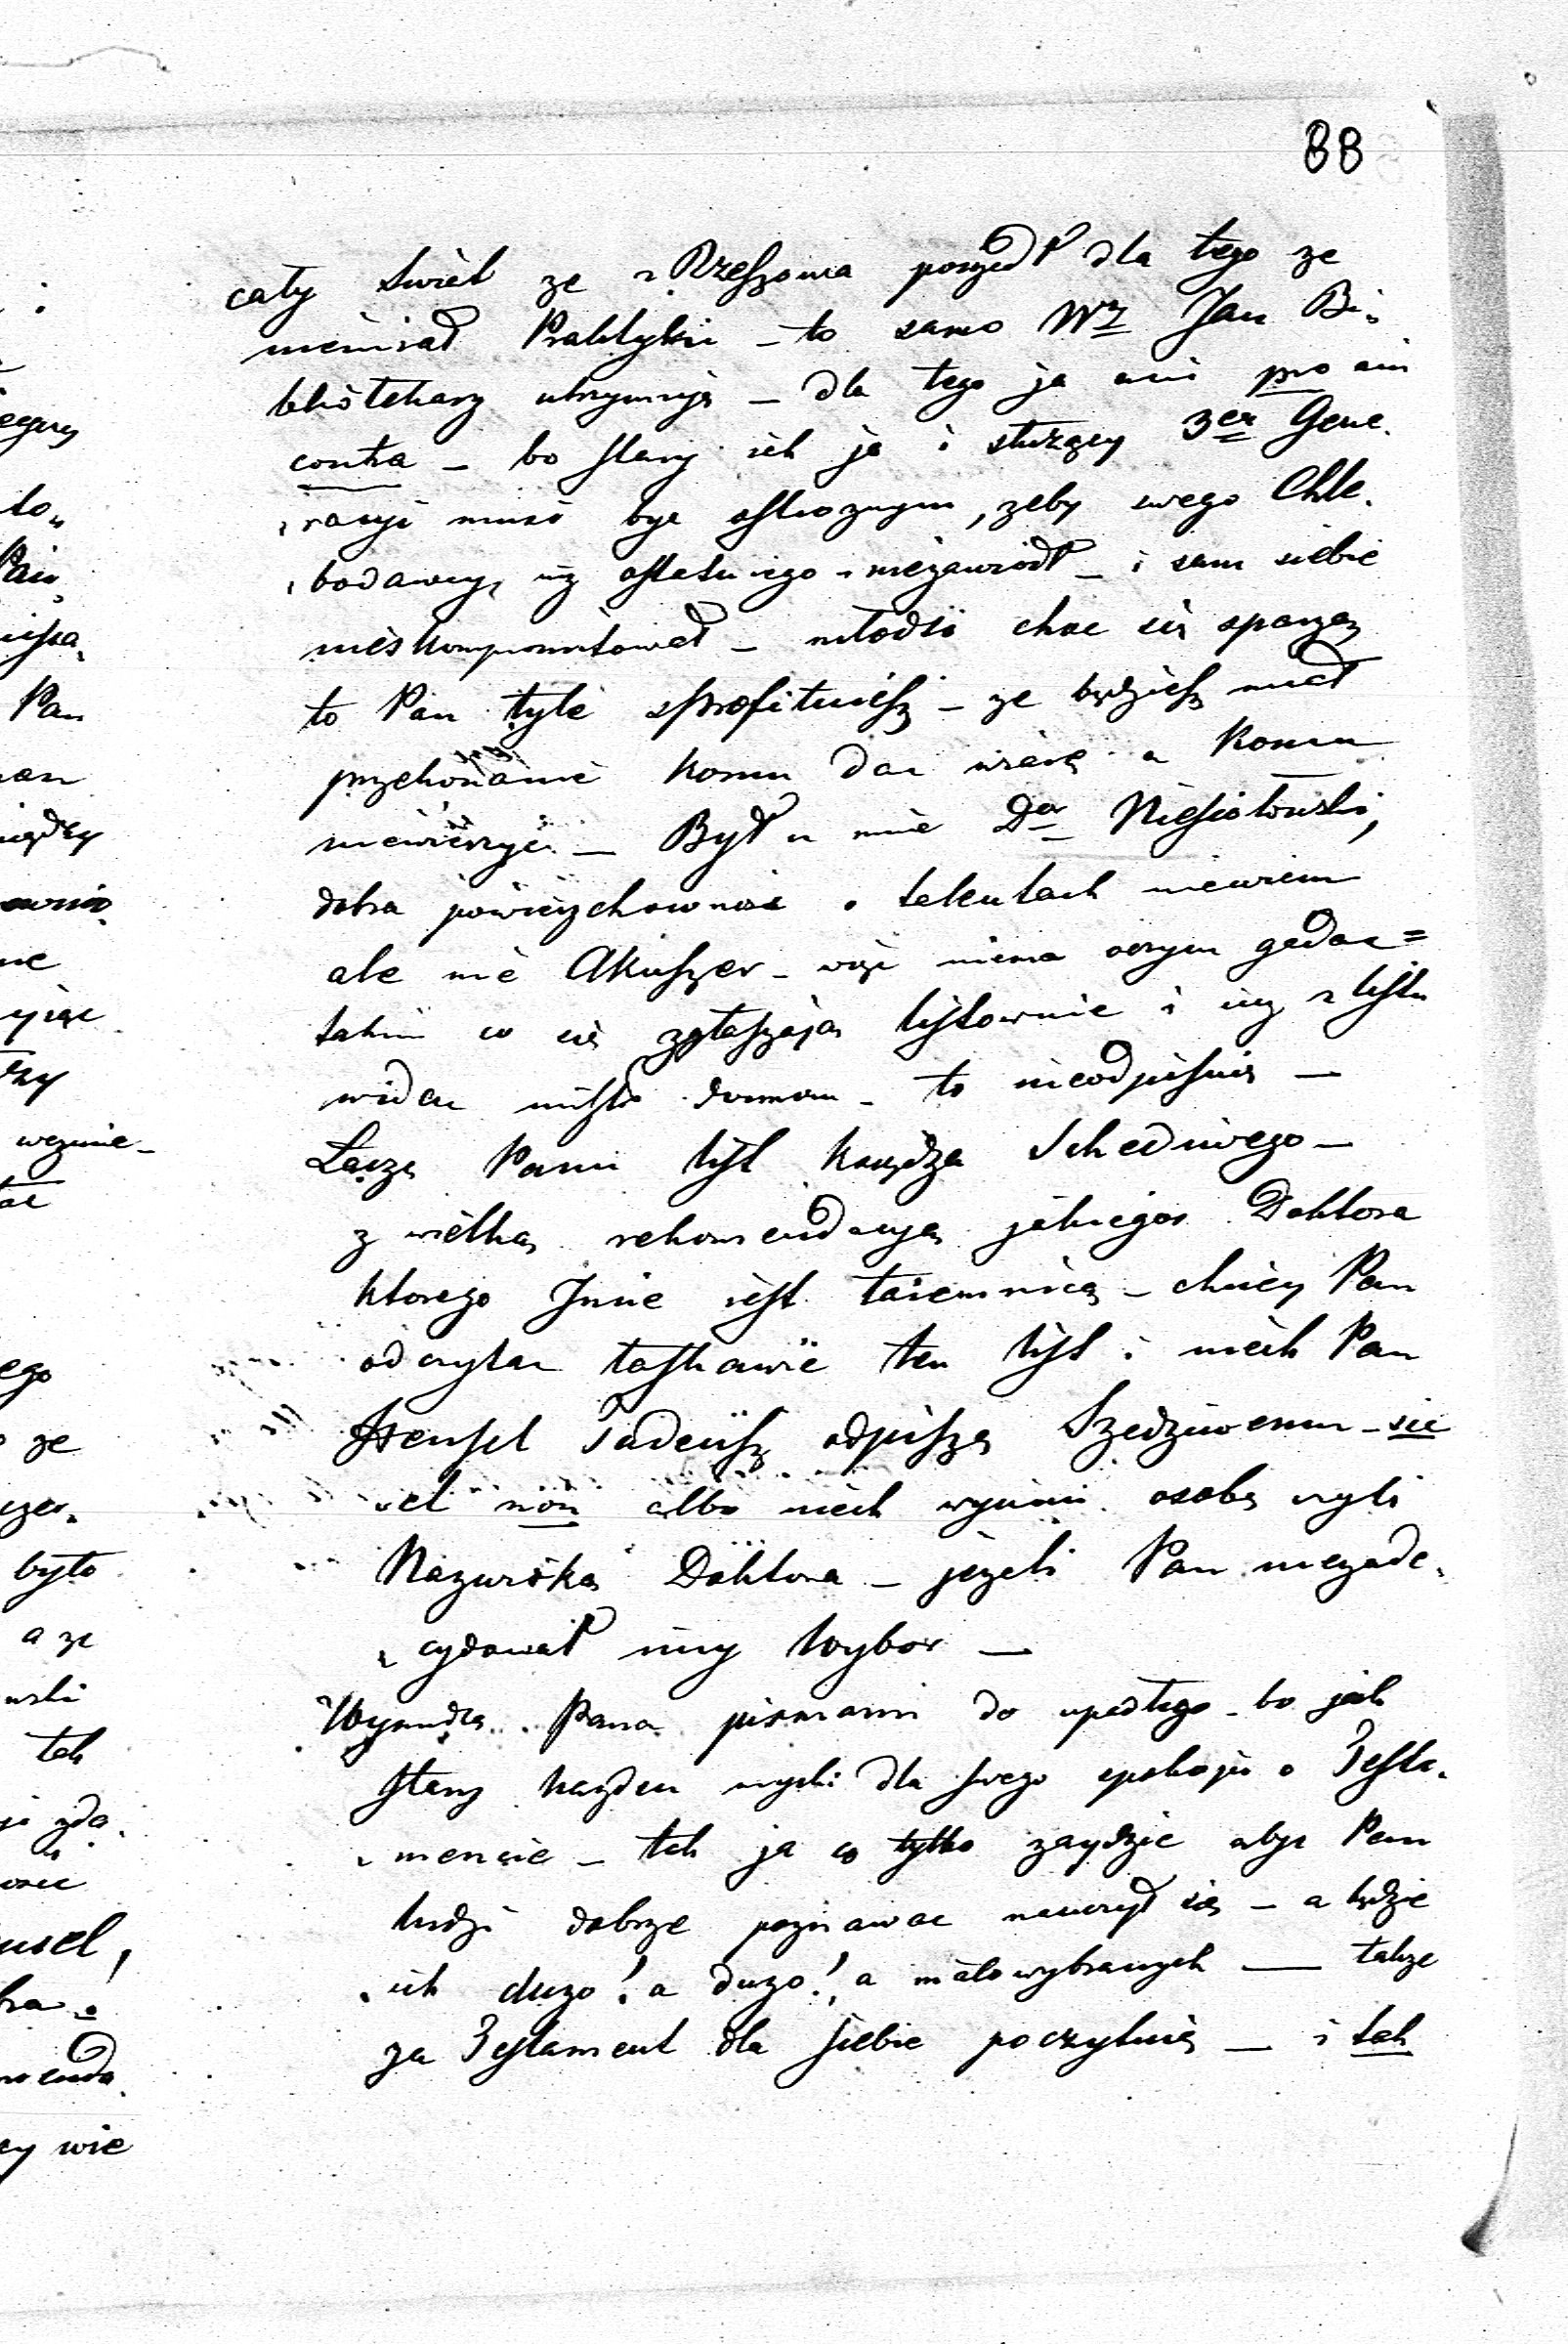 88
cały świat ze z Rzeszowa poszedł dla tego ze
niemiał Praktyki – to samo WJ Jan Bi-
bliotekarz utrzymuje – dla tego ja ani pro ani
contra – bo stary iak ja i służący 3er Gene-
racyi musi byc ostroznym, zeby swego Chle-
bodawcy, iuz ostatniego niezawiodł – i sam siebie
nieskompromitował – młodsi choc się sparzą
to Pan tyle sprofituiesz – ze będziesz miał
przekonanie komu dac wiarę a komu
niewierzyć – Był u mnie Dor Niesiołowski,
dobra powierzchownosc o talentach niewiem
ale nie Akuszer – więc niema oczym gadac =
takim co się zgłaszają listownie i iuz z listu
widac – to nieodpisuię –
Łączę Panu list Księdza Schedniwego –
z wielką rekomendacyą jakiegos Doktora
ktorego Jmie iest taiemnicą – chciey Pan
odczytac łaskawie ten list i niech Pan
Hensel Tadeusz odpiszę Szedziwemu – sic
vel non albo niech wymieni osobę czyli
Nazwiska Doktora – jezeli Pan niezade-
cydował iuz Wybor –
Wynudzę Pana pismami do upadłego – bo jak
stary kazden mysli dla swego spokoju o Testa-
mencie – tak ja co tylko zaydzie abys Pan
ludzi dobrze poznawac nauczył się – a będzie
ich duzo! a duzo!, a mało wybranych — takze
za Testament dla siebie poczytuię — i tak
to„
Pan
między
ze
było
a ze
tak
ey wie